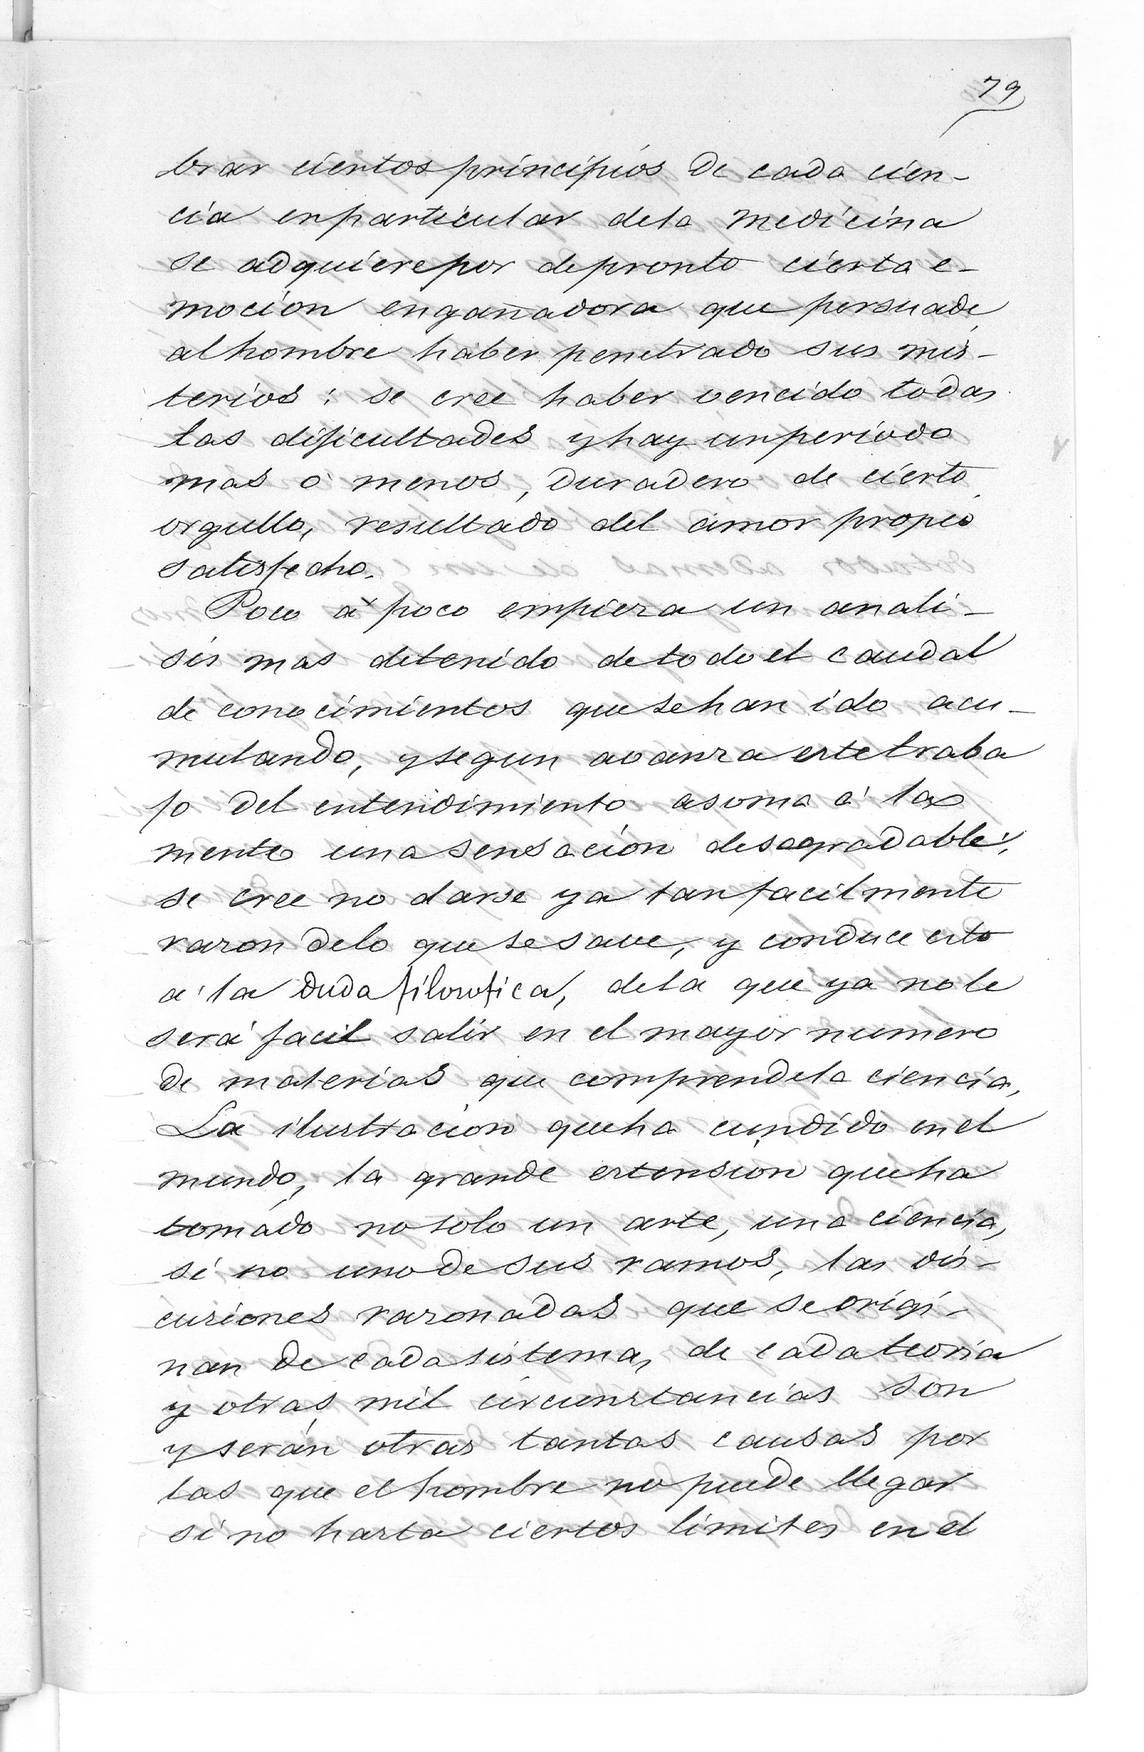 79
brar ciertos principios de cada cien-
cia en particular de la medicina
se adquiere por de pronto cierta e-
mocion engañadora que persuade
al hombre haber penetrado sus mis-
terios: se cree haber vencido todas
las dificultades y hay un periodo
mas o menos, duradero de cierto
orgullo, resultado del amor propio
satisfecho.
Poco á poco empieza un anali-
sis mas detenido de todo el caudal
de conocimientos que se han ido acu-
mulando, y segun avanza este traba
jo del entendimiento asoma á la
mente una sensación desagradable;
se cree no darse ya tan facilmente
razon de lo que se save, y conduce esto
a la duda filosofica, de la que ya no le
será facil salir en el mayor numero
de materias que comprende la ciencia,
La ilustracion que ha cundido en el
mundo, la grande estensión que ha
tomado no solo un arte, una ciencia,
si no uno de sus ramos, las dis-
cusiones razonadas que se origi-
nan de cada sistema, de cada teoria
y otras mil circunstancias son
y serán otras tantas causas por
las que el hombre no puede llegar
si no hasta ciertos limites en el